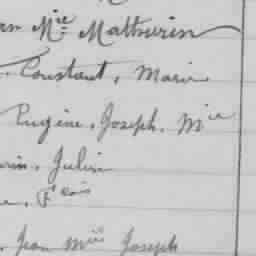 an Mie Mathurin
Constant, Marie
Eugène, Joseph, Mie
rin, Julien
e, Fçois
Jean Mie Joseph